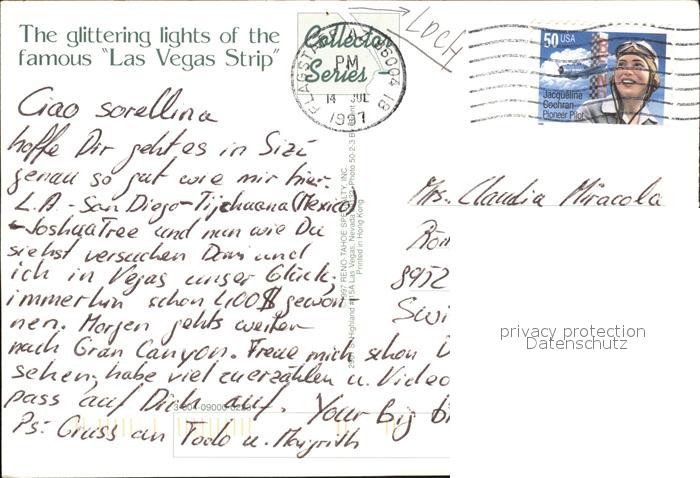 The glittering lights of the
famous "Las Vegas Strip"
Collector
Series
FLAGSTAFF, AZ 86004 1B
PM
14 JUL
1997
LOCH
50 USA
Jacqueline
Cochran
Pioneer Pilot
Ciao sorellina
hoffe Dir geht es in Sizi
genau so gut wie mir hier.
L.A - San Diego - Tijchuana (Mexico)
- Joshua Tree und nun wie Du
siehst versuchen Domi und
ich in Vegas unser Glück.
immerhin schon 400$ gewon
nen. Morgen gehts weiter
nach Gran Canyon. Freue mich schon D
sehen, habe viel zuerzählen u. Video
pass auf Dich auf. Your big b
Ps: Gruss an Todo u. Maigrith
Mrs. Claudia Miracola
Röm
8952
Swi
1997 RENO-TAHOE SPECIALTY, INC.
Highland #15A Las Vegas, Nevada
Printed in Hong Kong
Photo 50-2-3
privacy protection
Datenschutz